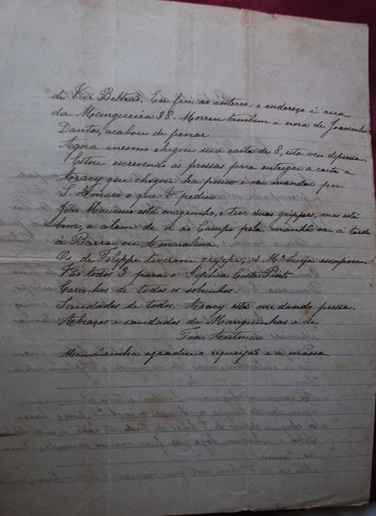 de Vivi Beltrão. Eu fui ao enterro, o endereço é rua
da Mangueira 38. Morreu tambem a nora de Joaninha
Dantas, acabou de penar
Agora mesmo chegou sua carta de 8, esta veu depressa.
Estou escrevendo ás pressas para entregar a carta a
Aracy que chegou ha pouco e vai mandar por
S. Amaro o que V. pediu
João Mauricio está magrinho, e teve duas grippes, mas está
bom, e alem de ir ao Campo pela manhã vai á tarde
á Barra ou Amaralina.
Os de Filippe tiveram grippe, só Mª Luiza escapou
Vão todos 3 para o Sophia Costa Pinto
Carinhos de todos os sobrinhos.
Saudades de todos. Aracy está me dando pressa.
Abraços e saudades de Manguinhos e de
Tia Antonia
agradeu a e a missa